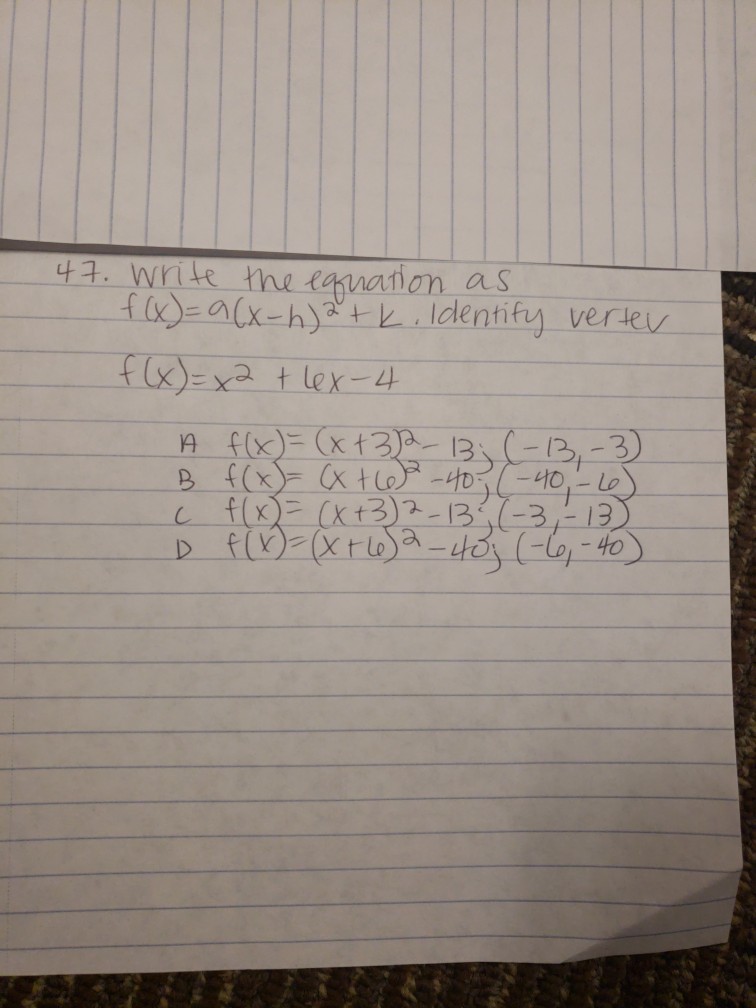 47. Write the equation as
f(x)=a(x-h)²+k. Identify vertex
f(x)=x²+6x-4
A f(x)=(x+3)²-13; (-13,-3)
B f(x)=(x+6)²-40; (-40,-6)
C f(x)=(x+3)²-13; (-3,-13)
D f(x)=(x+6)²-40; (-6,-40)